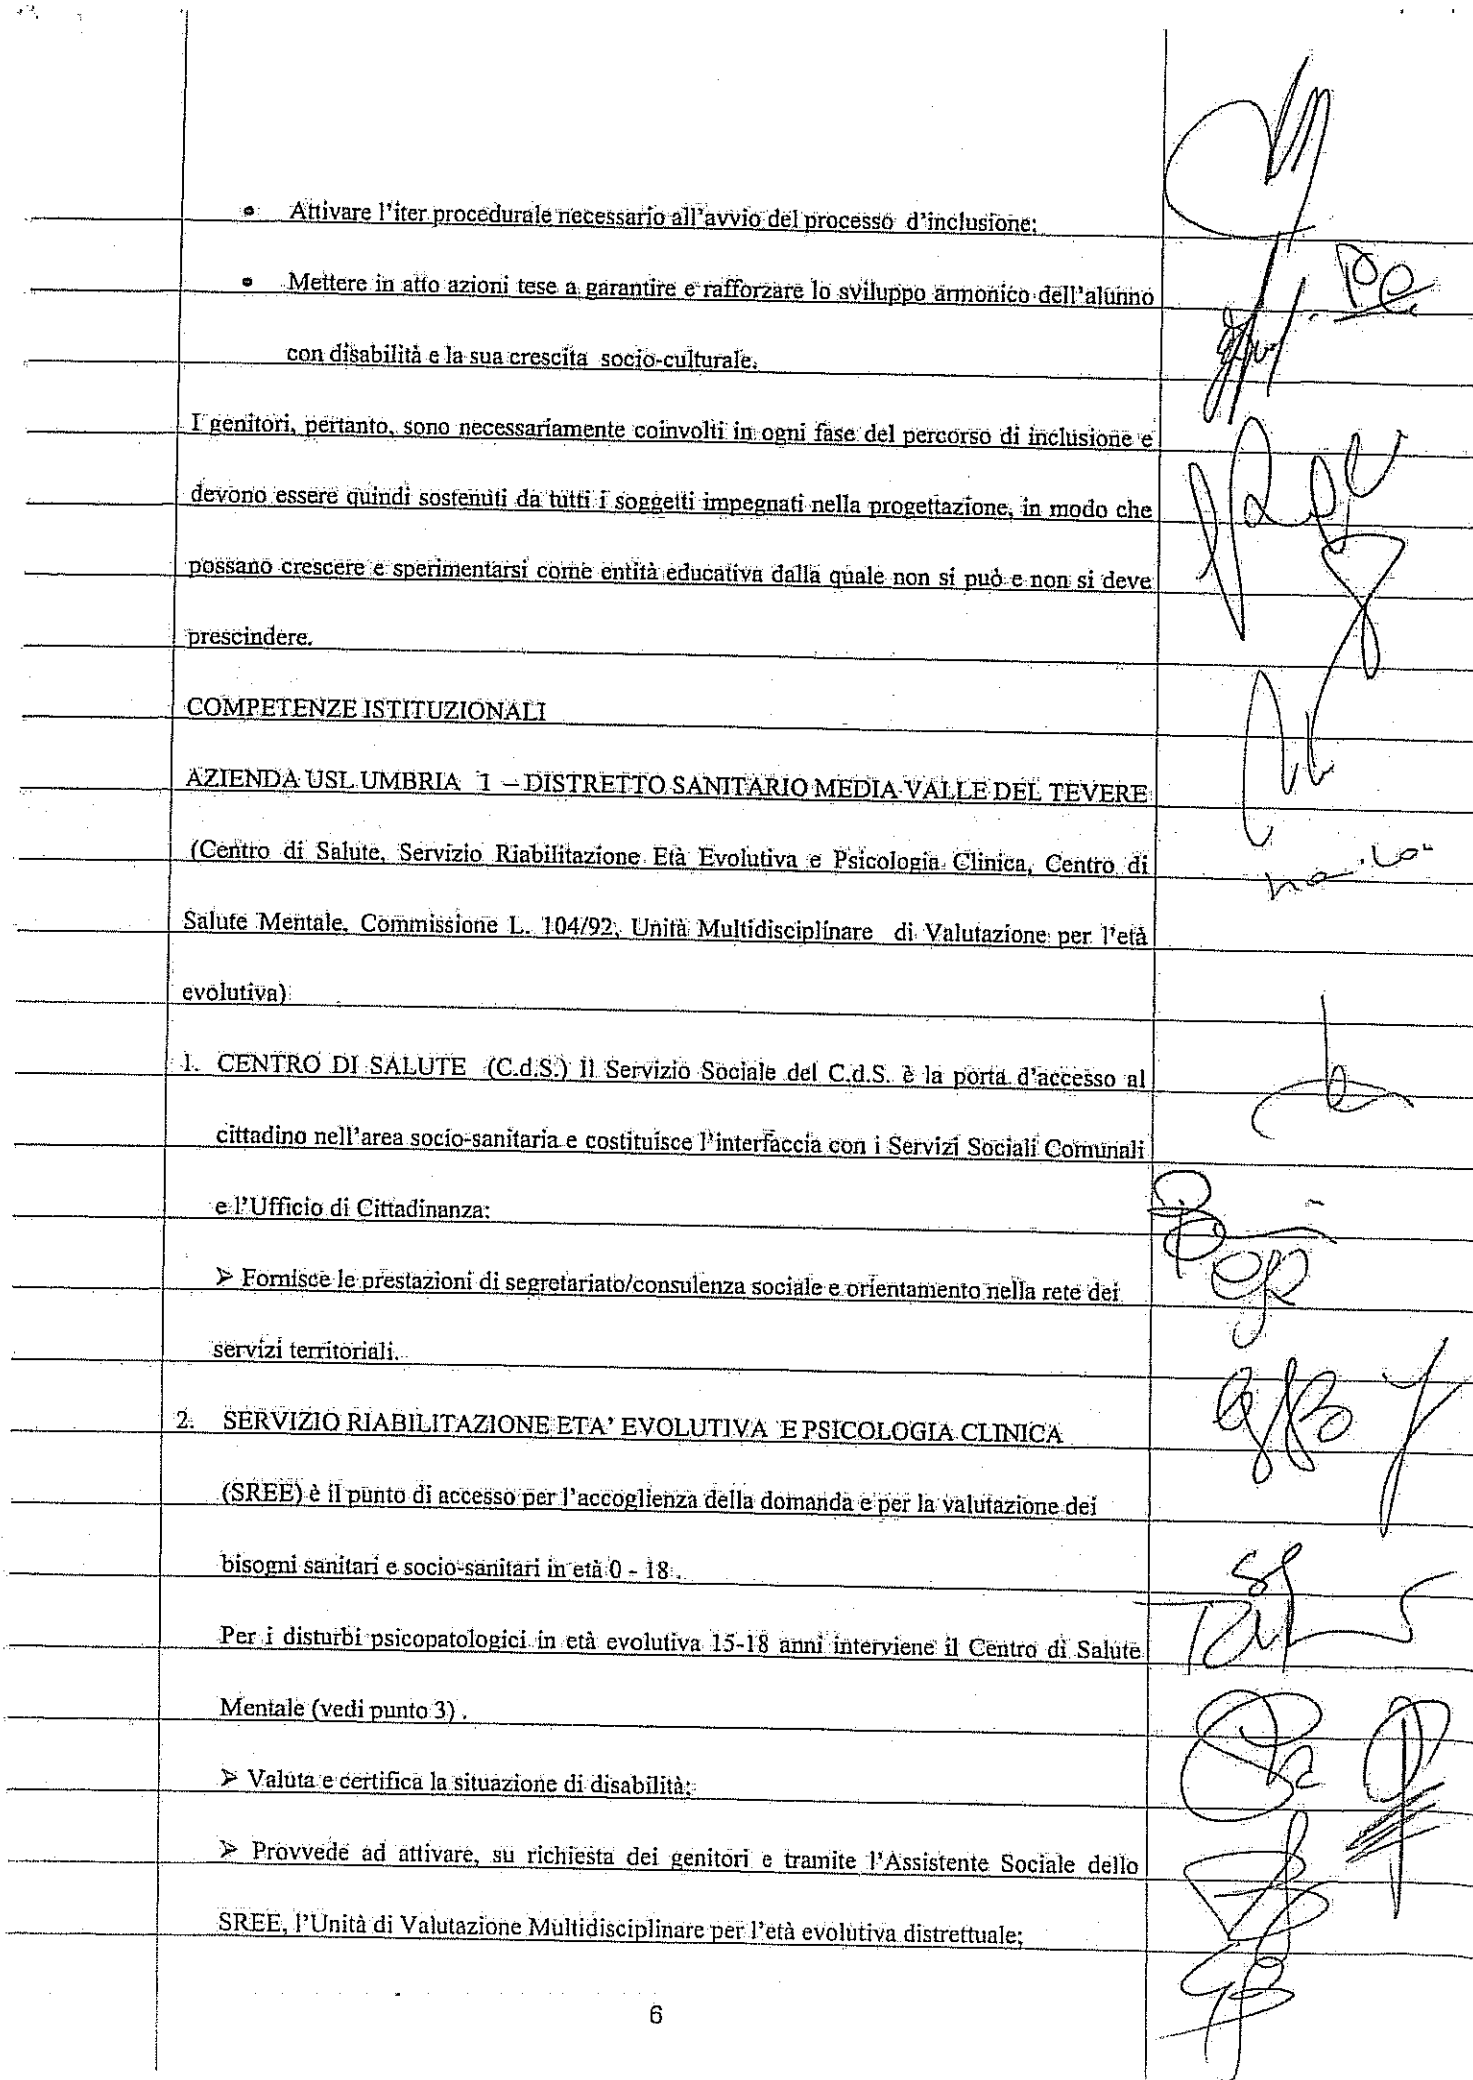 • Attivare l'iter procedurale necessario all'avvio del processo d'inclusione;
• Mettere in atto azioni tese a garantire e rafforzare lo sviluppo armonico dell'alunno
con disabilità e la sua crescita socio-culturale.
I genitori, pertanto, sono necessariamente coinvolti in ogni fase del percorso di inclusione e
devono essere quindi sostenuti da tutti i soggetti impegnati nella progettazione, in modo che
possano crescere e sperimentarsi come entità educativa dalla quale non si può e non si deve
prescindere.
COMPETENZE ISTITUZIONALI
AZIENDA USL UMBRIA 1 – DISTRETTO SANITARIO MEDIA VALLE DEL TEVERE
(Centro di Salute, Servizio Riabilitazione Età Evolutiva e Psicologia Clinica, Centro di
Salute Mentale, Commissione L. 104/92, Unità Multidisciplinare di Valutazione per l'età
evolutiva)
1. CENTRO DI SALUTE (C.d.S.) Il Servizio Sociale del C.d.S. è la porta d'accesso al
cittadino nell'area socio-sanitaria e costituisce l'interfaccia con i Servizi Sociali Comunali
e l'Ufficio di Cittadinanza:
➢ Fornisce le prestazioni di segretariato/consulenza sociale e orientamento nella rete dei
servizi territoriali.
2. SERVIZIO RIABILITAZIONE ETA' EVOLUTIVA E PSICOLOGIA CLINICA
(SREE) è il punto di accesso per l'accoglienza della domanda e per la valutazione dei
bisogni sanitari e socio-sanitari in età 0 - 18 .
Per i disturbi psicopatologici in età evolutiva 15-18 anni interviene il Centro di Salute
Mentale (vedi punto 3) .
➢ Valuta e certifica la situazione di disabilità;
➢ Provvede ad attivare, su richiesta dei genitori e tramite l'Assistente Sociale dello
SREE, l'Unità di Valutazione Multidisciplinare per l'età evolutiva distrettuale;
6